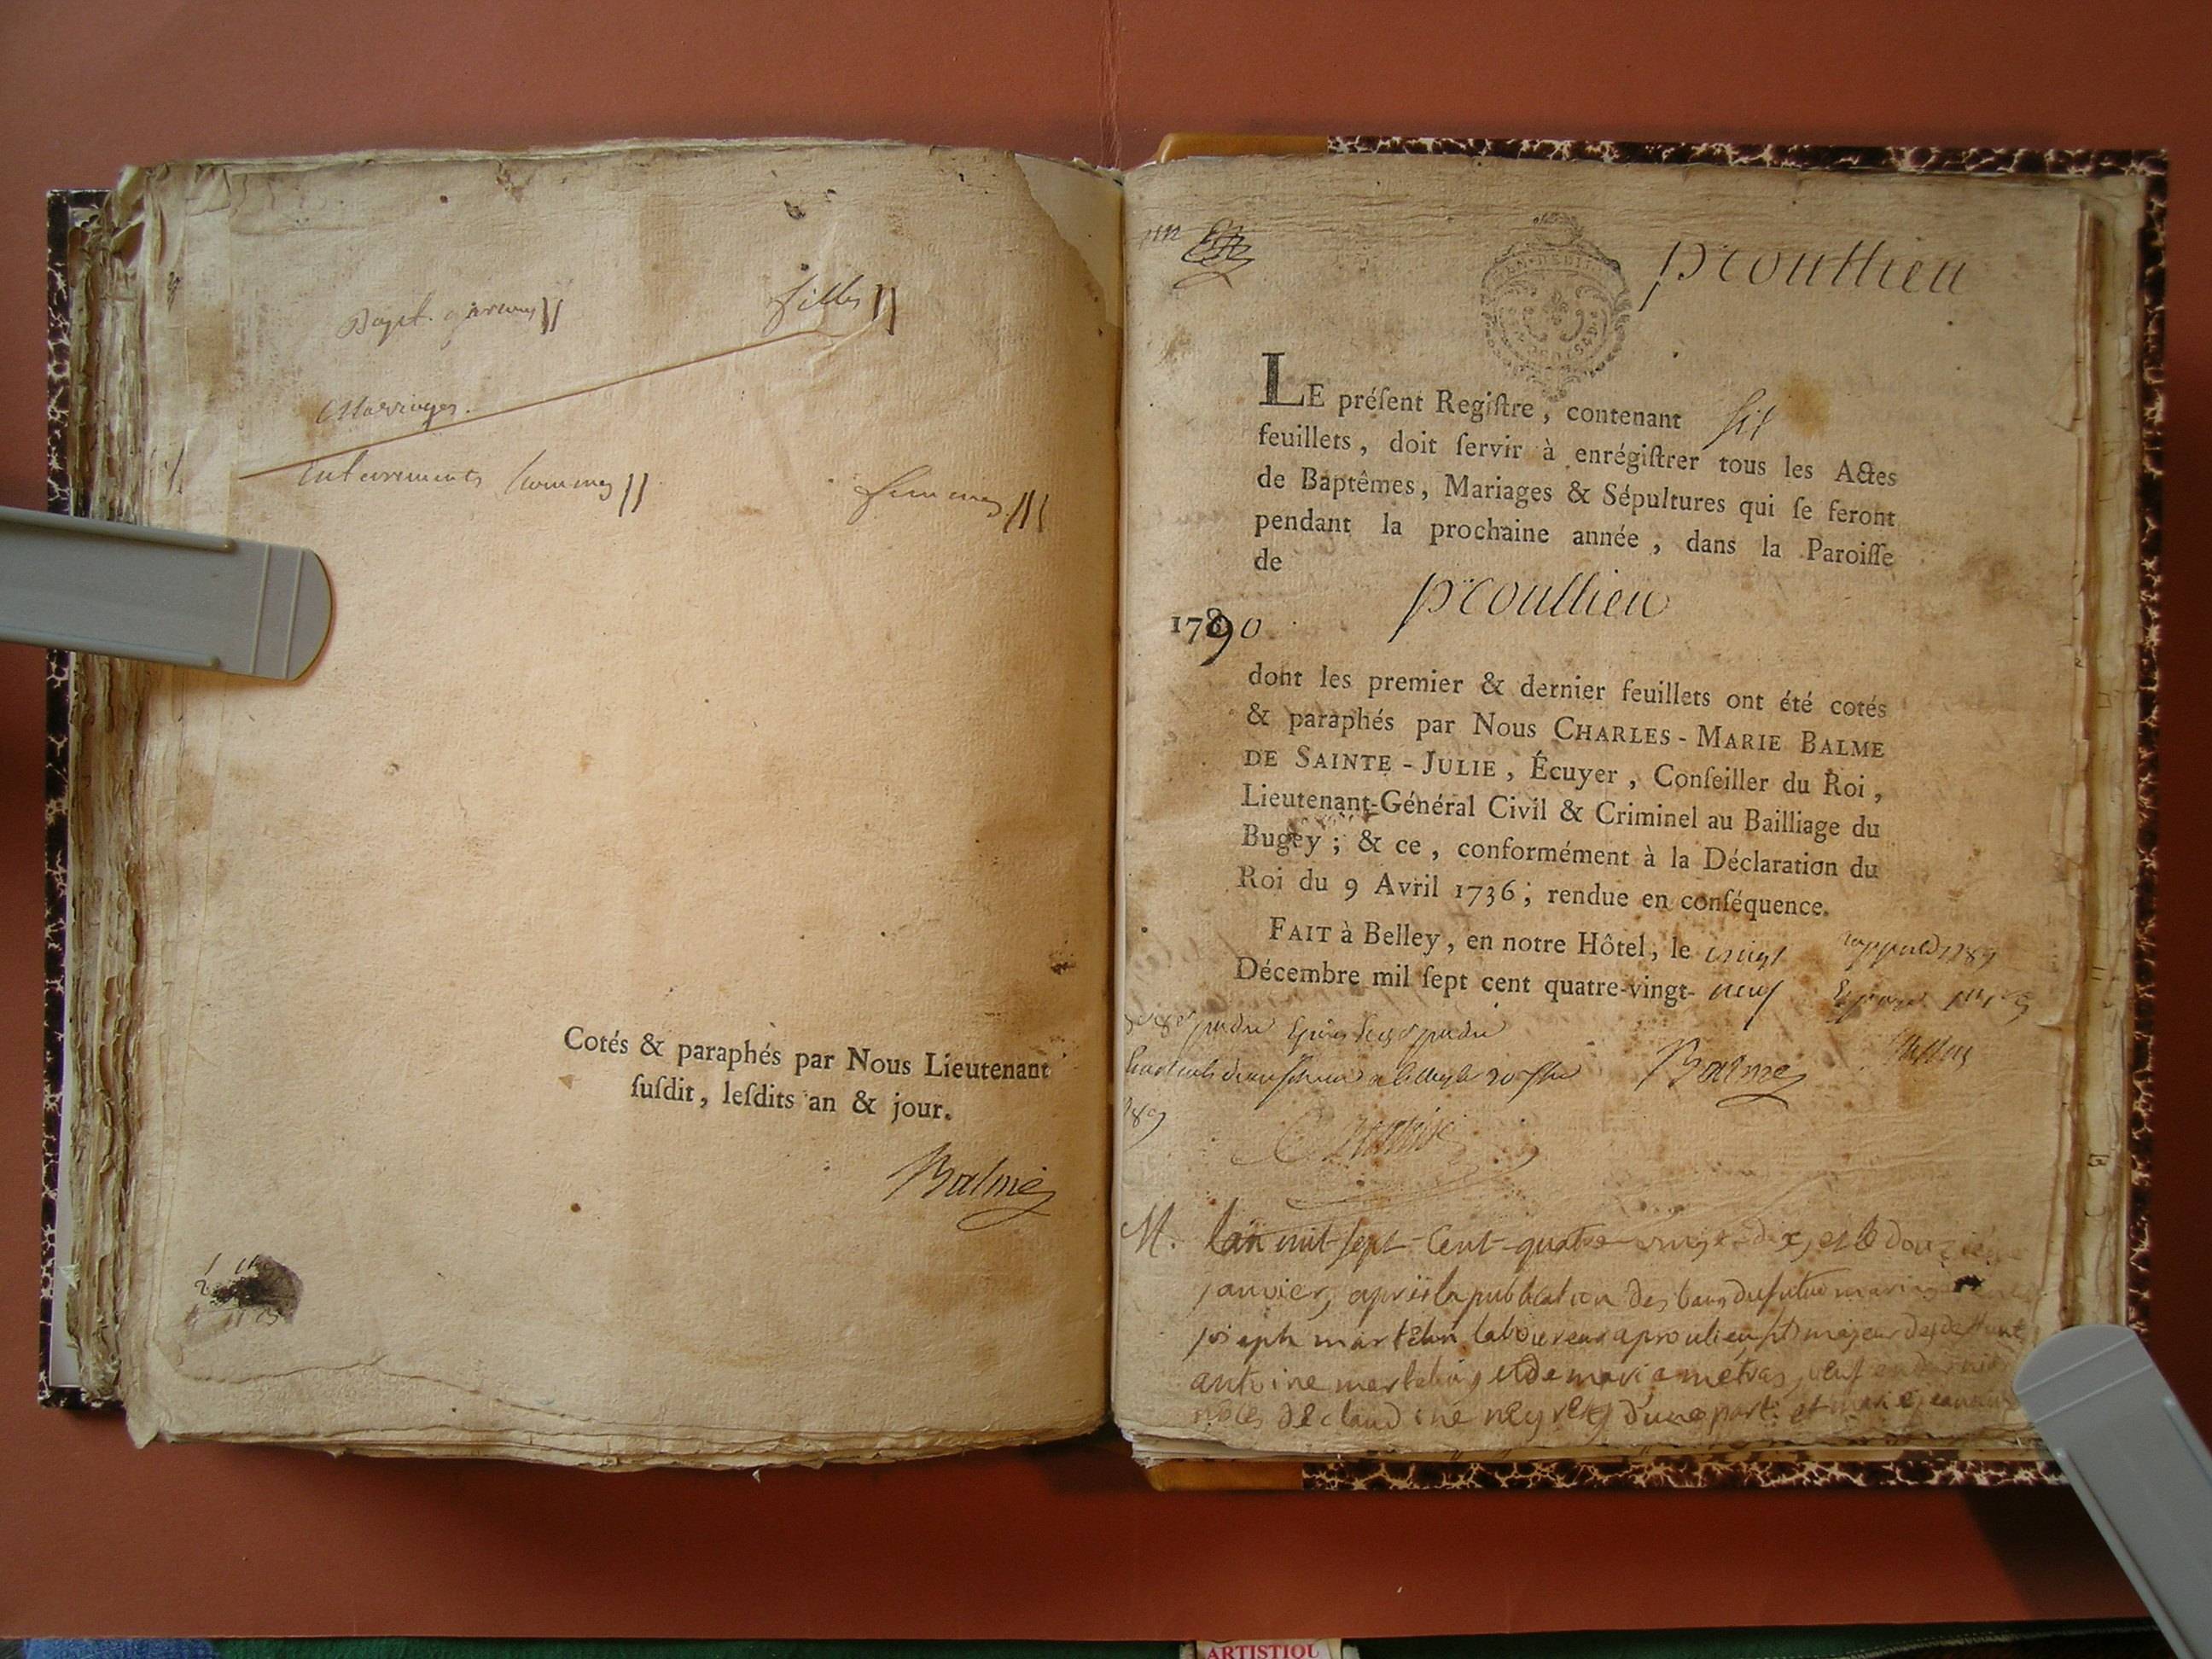 Bapt. garçons || filles ||
Marriages.
Enterrements hommes || femmes |||
Cotés & paraphés par Nous Lieutenant
ſuſdit, leſdits an & jour.
Balme
proullieu
LE préſent Regiſtre, contenant ſix
feuillets, doit ſervir à enrégiſtrer tous les Actes
de Baptêmes, Mariages & Sépultures qui ſe feront
pendant la prochaine année, dans la Paroiſſe
de proullieu
1790
dont les premier & dernier feuillets ont été cotés
& paraphés par Nous CHARLES-MARIE BALME
DE SAINTE-JULIE, Écuyer, Conſeiller du Roi,
Lieutenant-Général Civil & Criminel au Bailliage du
Bugey; & ce, conformément à la Déclaration du
Roi du 9 Avril 1736; rendue en conſéquence.
FAIT à Belley, en notre Hôtel, le vingt
Décembre mil ſept cent quatre-vingt-neuf
Balme
M. L'an mil sept cent quatre vingt dix, et le douzieme
janvier, après la publication des bans du futur mariage
joseph martelin laboureur a proulieu fils majeur des deffunts
antoine martelin, et de marie metras, veuf en
de claudine neyret d'une part. et marie
ARTISTIQU